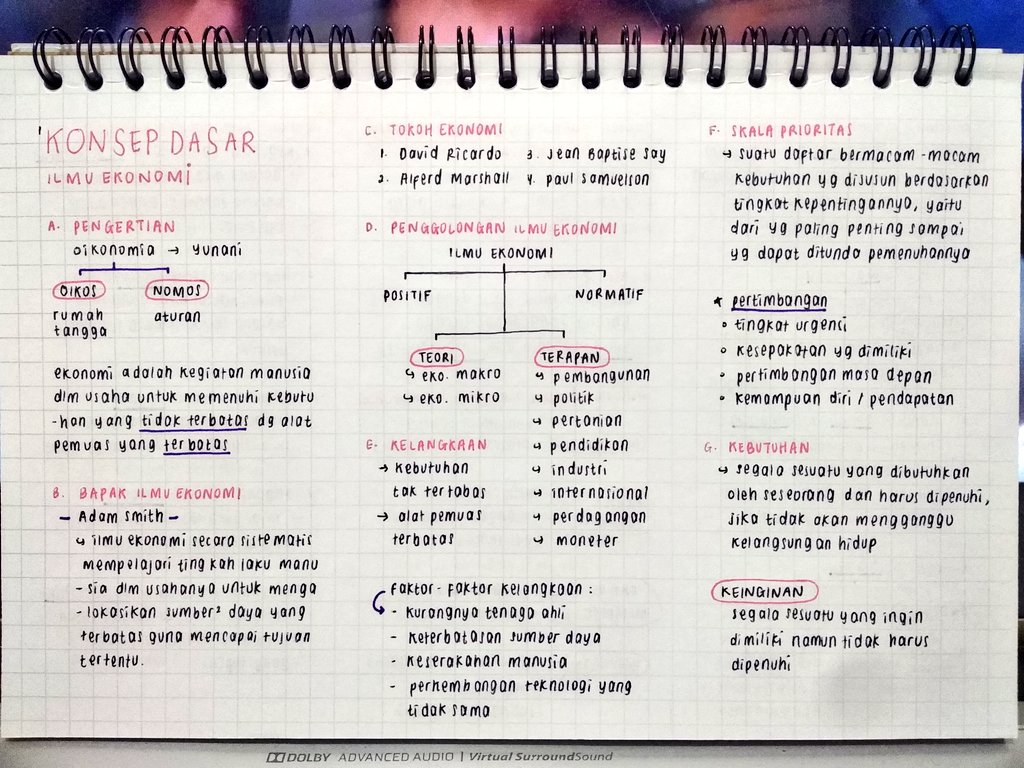 KONSEP DASAR
ILMU EKONOMI
A. PENGERTIAN
oikonomia → yunani
OIKOS
NOMOS
rumah
tangga
aturan
ekonomi adalah kegiatan manusia
dlm usaha untuk memenuhi kebutu
-han yang tidak terbatas dg alat
pemuas yang terbatas
B. BAPAK ILMU EKONOMI
- Adam Smith -
↳ ilmu ekonomi secara sistematis
mempelajari tingkah laku manu
-sia dlm usahanya untuk menga
-lokasikan sumber² daya yang
terbatas guna mencapai tujuan
tertentu.
C. TOKOH EKONOMI
1. David Ricardo 3. Jean Baptise Say
2. Alferd Marshall 4. Paul Samuelson
D. PENGGOLONGAN ILMU EKONOMI
ILMU EKONOMI
POSITIF
NORMATIF
TEORI
↳ eko. makro
↳ eko. mikro
TERAPAN
↳ pembangunan
↳ politik
↳ pertanian
↳ pendidikan
↳ industri
↳ internasional
↳ perdagangan
↳ moneter
E. KELANGKAAN
→ kebutuhan
tak tertabas
→ alat pemuas
terbatas
faktor-faktor kelangkaan :
- kurangnya tenaga ahli
- keterbatasan sumber daya
- keserakahan manusia
- perkembangan teknologi yang
tidak sama
F. SKALA PRIORITAS
↳ suatu daftar bermacam-macam
kebutuhan yg disusun berdasarkan
tingkat kepentingannya, yaitu
dari yg paling penting sampai
yg dapat ditunda pemenuhannya
* pertimbangan
• tingkat urgenci
• kesepakatan yg dimiliki
• pertimbangan masa depan
• kemampuan diri / pendapatan
G. KEBUTUHAN
↳ segala sesuatu yang dibutuhkan
oleh seseorang dan harus dipenuhi,
jika tidak akan mengganggu
kelangsungan hidup
KEINGINAN
segala sesuatu yang ingin
dimiliki namun tidak harus
dipenuhi
DOLBY ADVANCED AUDIO | Virtual SurroundSound